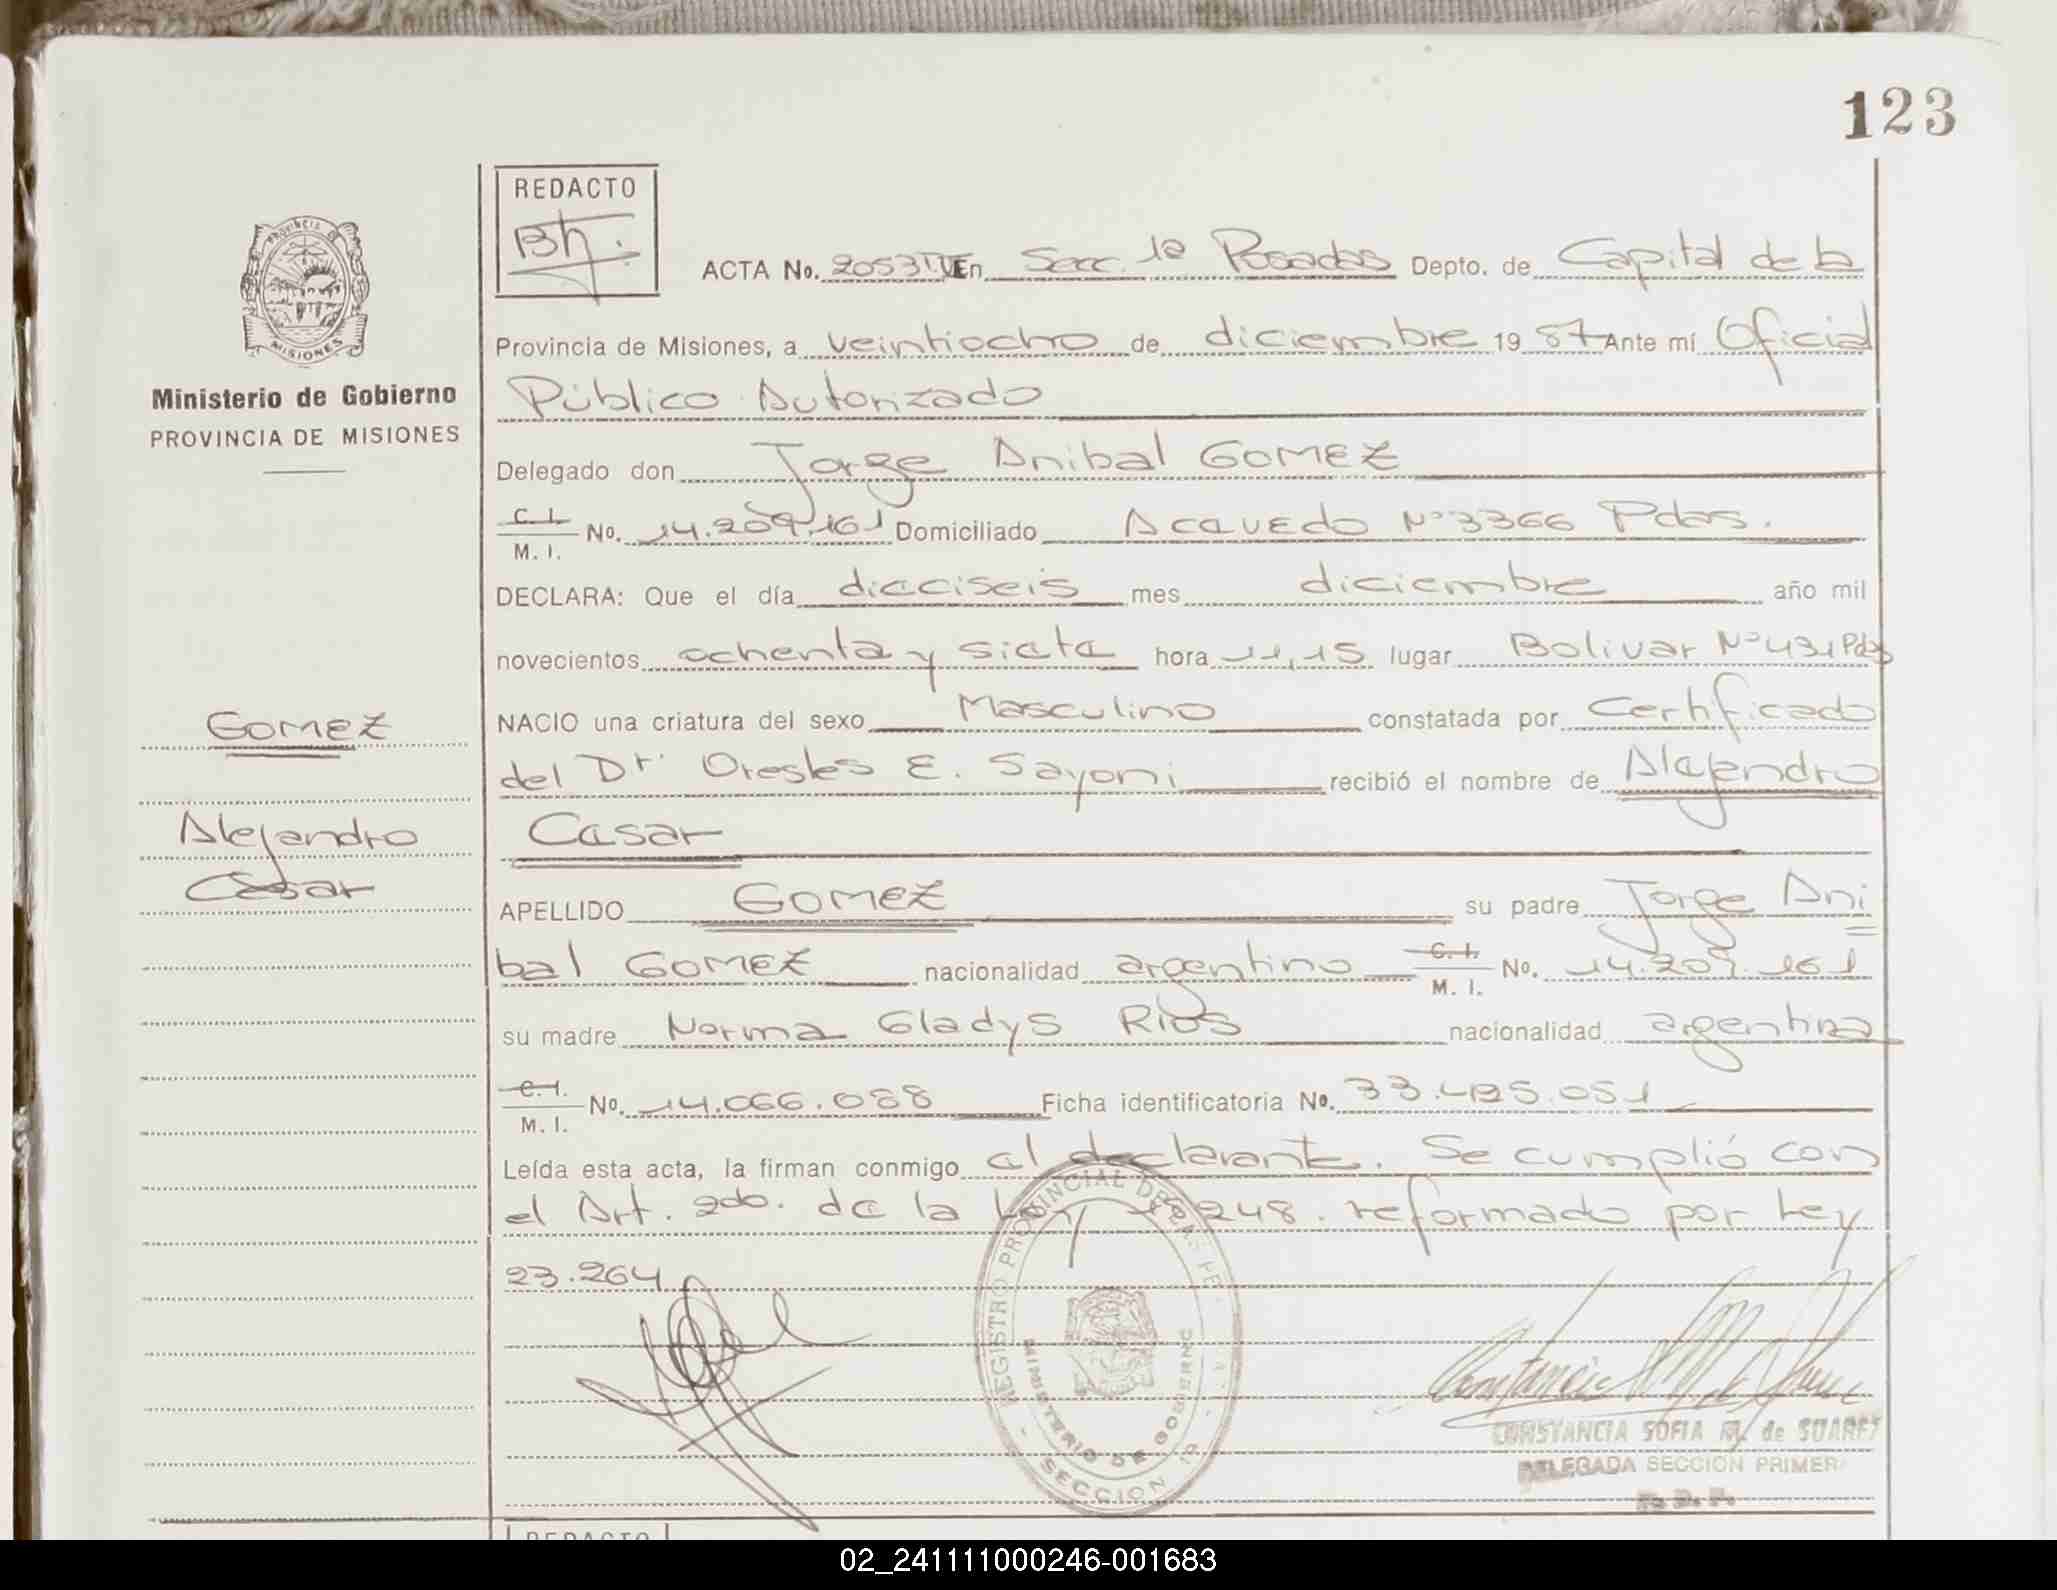 123
REDACTO
Bh.
ACTA No. 2053 T.VI En Secc. 1ª Posadas Depto. de Capital de la
Provincia de Misiones, a veintiocho de diciembre 19 87 Ante mí Oficial
Público Autorizado
Delegado don Jorge Anibal GOMEZ
C. I.
M. I. No. 14.209.161 Domiciliado Acevedo Nº 3366 Pdas.
DECLARA: Que el día dieciseis mes diciembre año mil
novecientos ochenta y siete hora 11,15 lugar Bolivar Nº 431 Pdas
NACIO una criatura del sexo Masculino constatada por Certificado
del Dr. Orestes E. Sayoni recibió el nombre de Alejandro
Cesar
APELLIDO GOMEZ su padre Jorge Ani
bal GOMEZ nacionalidad argentino C. I.
M. I. No. 14.209.161
su madre Norma Gladys RIOS nacionalidad argentina
C. I.
M. I. No. 14.066.088 Ficha identificatoria No. 33.425.051
Leída esta acta, la firman conmigo el declarante. Se cumplió con
el Art. 2do. de la Ley 18248. reformado por Ley
23.264
Provincia de
MISIONES
Ministerio de Gobierno
PROVINCIA DE MISIONES
GOMEZ
Alejandro
Cesar
REGISTRO PROVINCIAL DE LAS PERSONAS
MINISTERIO DE GOBIERNO
SECCION 1ª
CONSTANCIA SOFIA M. de SUAREZ
DELEGADA SECCION PRIMERA
R. D. P.
REDACTO
02_241111000246-001683